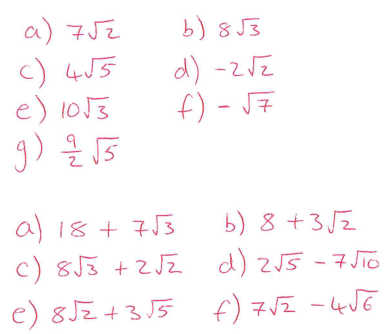 a) 7√2 b) 8√3
c) 4√5 d) -2√2
e) 10√3 f) - √7
g) 9/2 √5
a) 18 + 7√3 b) 8 + 3√2
c) 8√3 + 2√2 d) 2√5 - 7√10
e) 8√2 + 3√5 f) 7√2 - 4√6